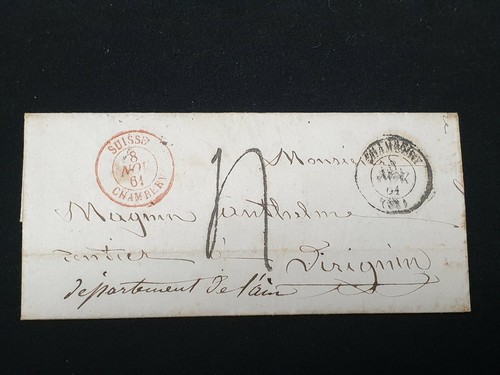 SUISSE
8
NOV
61
CHAMBERY
CHAMBERY
8
61
Monsieur
Magnin anthelme
rentier à
Virignin
département de l'ain